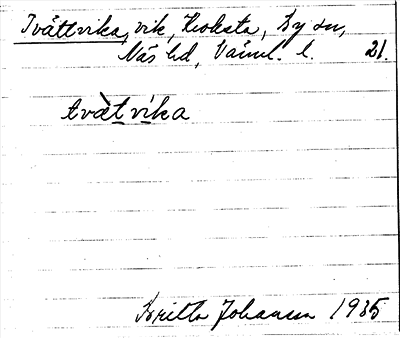 Tvättvika, vik, Kroksta, By sn,
Näs hd, Värml. l. 21.
tvàtvíka
Britta Johansson 1935